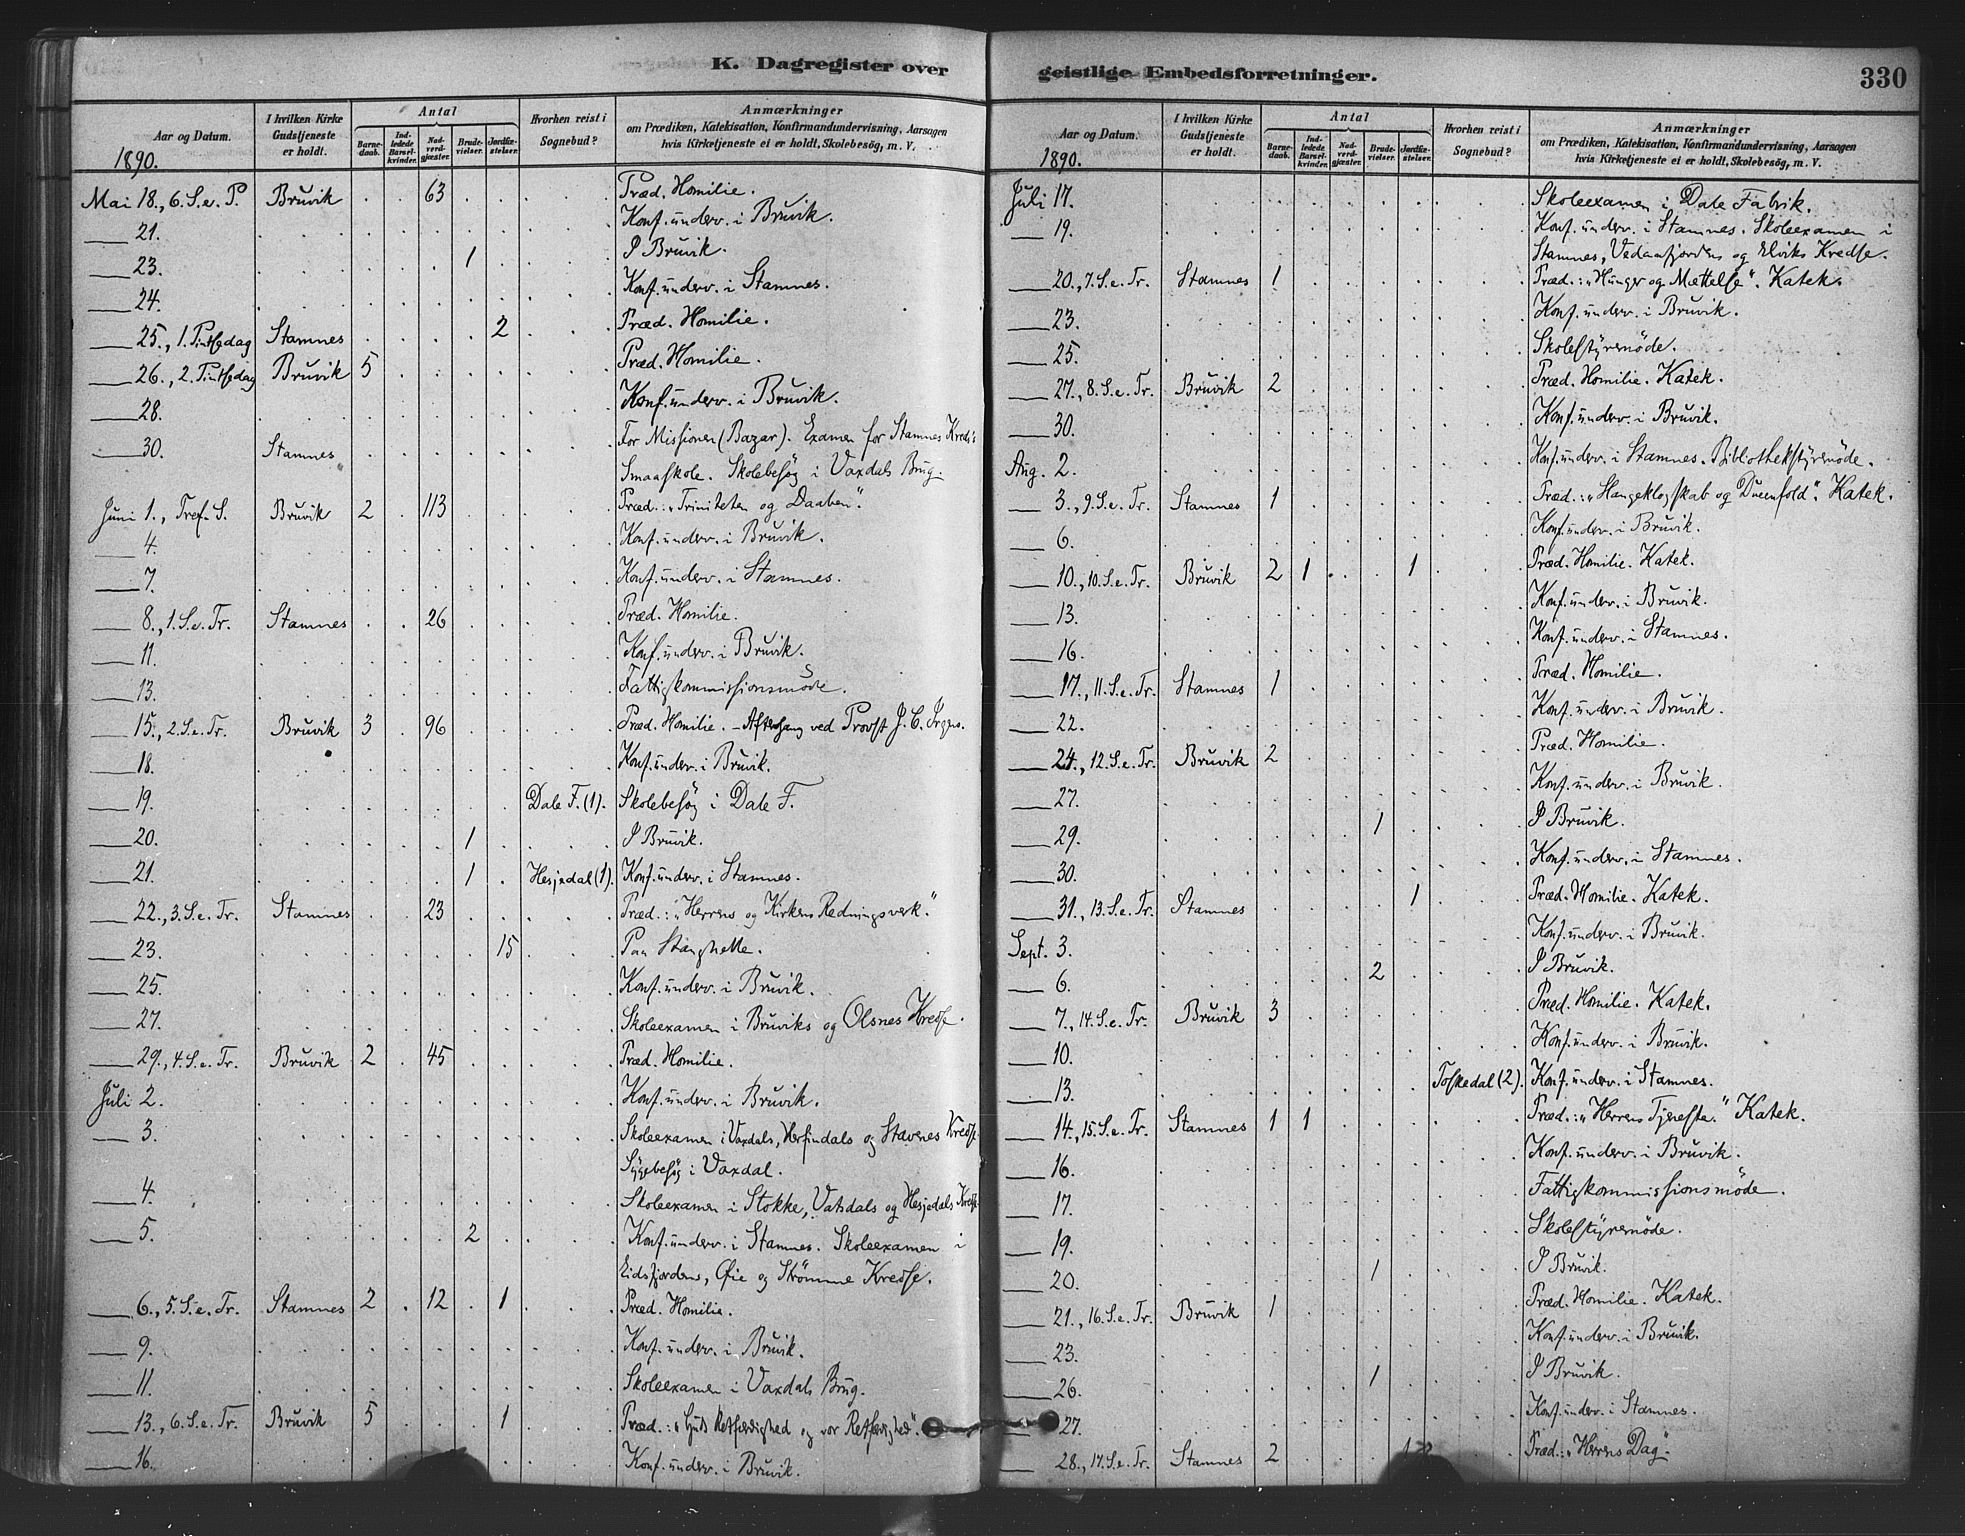 K. Dagregister over
Aar og Datum.
I hvilken Kirke Gudstjeneste er holdt.
Antal
Barnedaab.
Indledede Barselkvinder.
Nadverdgjæster.
Brudevielser.
Jordfæstelser.
Hvorhen reist i Sognebud?
Anmærkninger
om Prædiken, Katekisation, Konfirmandundervisning, Aarsagen
hvis Kirketjeneste ei er holdt, Skolebesög, m. V.
1890.
Mai 18., 6. S. e. P. Bruvik 63 Præd. Homilie.
21. Konf. underv. i Bruvik.
23. 1 I Bruvik.
24. Konf. underv. i Stamnes.
25., 1. Pintsedag Stamnes 2 Præd. Homilie.
26., 2. Pintsedag Bruvik 5 Præd. Homilie.
28. Konf. underv. i Bruvik.
30. Stamnes For Missionen (Bazar). Examen for Stamnes Kreds's
Smaaskole. Skolebesøg i Vaxdals Brug.
Juni 1., Tref. S. Bruvik 2 113 Præd.: "Triniteten og Daaben".
4. Konf. underv. i Bruvik.
7. Konf. underv. i Stamnes.
8., 1. S. e. Tr. Stamnes 26 Præd. Homilie.
11. Konf. underv. i Bruvik.
13. Fattigkommissionsmøde.
15., 2. S. e. Tr. Bruvik 3 96 Præd. Homilie. – Aftensang ved Provst J. C.
18. Konf. underv. i Bruvik.
19. Dale F. (1). Skolebesøg i Dale F.
20. 1 I Bruvik.
21. 1 Hesjedal (1). Konf. underv. i Stamnes.
22., 3. S. e. Tr. Stamnes 23 Præd.: "Herrens og Kirkens Redningsverk."
23. 15 Paa Stanghelle.
25. Konf. underv. i Bruvik.
27. Skoleexamen i Bruviks og Olsnes Kredse.
29., 4. S. e. Tr. Bruvik 2 45 Præd. Homilie.
Juli 2. Konf. underv. i Bruvik.
3. Skoleexamen i Vaxdals, Herfindals og Stavenes Kredse.
Sygebesøg i Vaxdal.
4. Skoleexamen i Stokke, Vatsdals og Hesjedals Kredse
5. 2 Konf. underv. i Stamnes. Skoleexamen i
Eidsfjordens, Øie og Strømme Kredse.
6., 5. S. e. Tr. Stamnes 2 12 1 Præd. Homilie.
9. Konf. underv. i Bruvik.
11. Skoleexamen i Vaxdals Brug.
13., 6. S. e. Tr. Bruvik 5 1 Præd.: "Guds Retfærdighed og vor Retfærdighed".
16. Konf. underv. i Bruvik.
geistlige Embedsforretninger.
330
Aar og Datum.
I hvilken Kirke Gudstjeneste er holdt.
Antal
Barnedaab.
Indledede Barselkvinder.
Nadverdgjæster.
Brudevielser.
Jordfæstelser.
Hvorhen reist i Sognebud?
Anmærkninger
om Prædiken, Katekisation, Konfirmandundervisning, Aarsagen
hvis Kirketjeneste ei er holdt, Skolebesög, m. V.
1890.
Juli 17. Skoleexamen i Dale Fabrik.
19. Konf. underv. i Stamnes. Skoleexamen i
Stamnes, Vedaafjordens og Elviks Kredse.
20., 7. S. e. Tr. Stamnes 1 Præd.: "Hunger og Mættelse". Katek.
23. Konf. underv. i Bruvik.
25. Skolestyremøde.
27., 8. S. e. Tr. Bruvik 2 Præd. Homilie. Katek.
30. Konf. underv. i Bruvik.
Aug. 2. Konf. underv. i Stamnes. Bibliothekstyremøde.
3., 9. S. e. Tr. Stamnes 1 Præd.: og Katek.
6. Konf. underv. i Bruvik.
10., 10. S. e. Tr. Bruvik 2 1 1 Præd. Homilie. Katek.
13. Konf. underv. i Bruvik.
16. Konf. underv. i Stamnes.
17., 11. S. e. Tr. Stamnes 1 Præd. Homilie.
22. Konf. underv. i Bruvik.
24., 12. S. e. Tr. Bruvik 2 Præd. Homilie.
27. Konf. underv. i Bruvik.
29. 1 I Bruvik.
30. Konf. underv. i Stamnes.
31., 13. S. e. Tr. Stamnes 1 Præd. Homilie. Katek.
Sept. 3. Konf. underv. i Bruvik.
6. 2 I Bruvik.
7., 14. S. e. Tr. Bruvik 3 Præd. Homilie. Katek.
10. Konf. underv. i Bruvik.
13. Toskedal (2). Konf. underv. i Stamnes.
14., 15. S. e. Tr. Stamnes 1 1 Præd.: "Herrens Tjeneste." Katek.
16. Konf. underv. i Bruvik.
17. Fattigkommissionsmøde.
19. Skolestyremøde.
20. 1 I Bruvik.
21., 16. S. e. Tr. Bruvik 1 Præd. Homilie. Katek.
23. Konf. underv. i Bruvik.
26. 1 I Bruvik.
27. Konf. underv. i Stamnes.
28., 17. S. e. Tr. Stamnes 2 Præd.: "Herrens Dag".